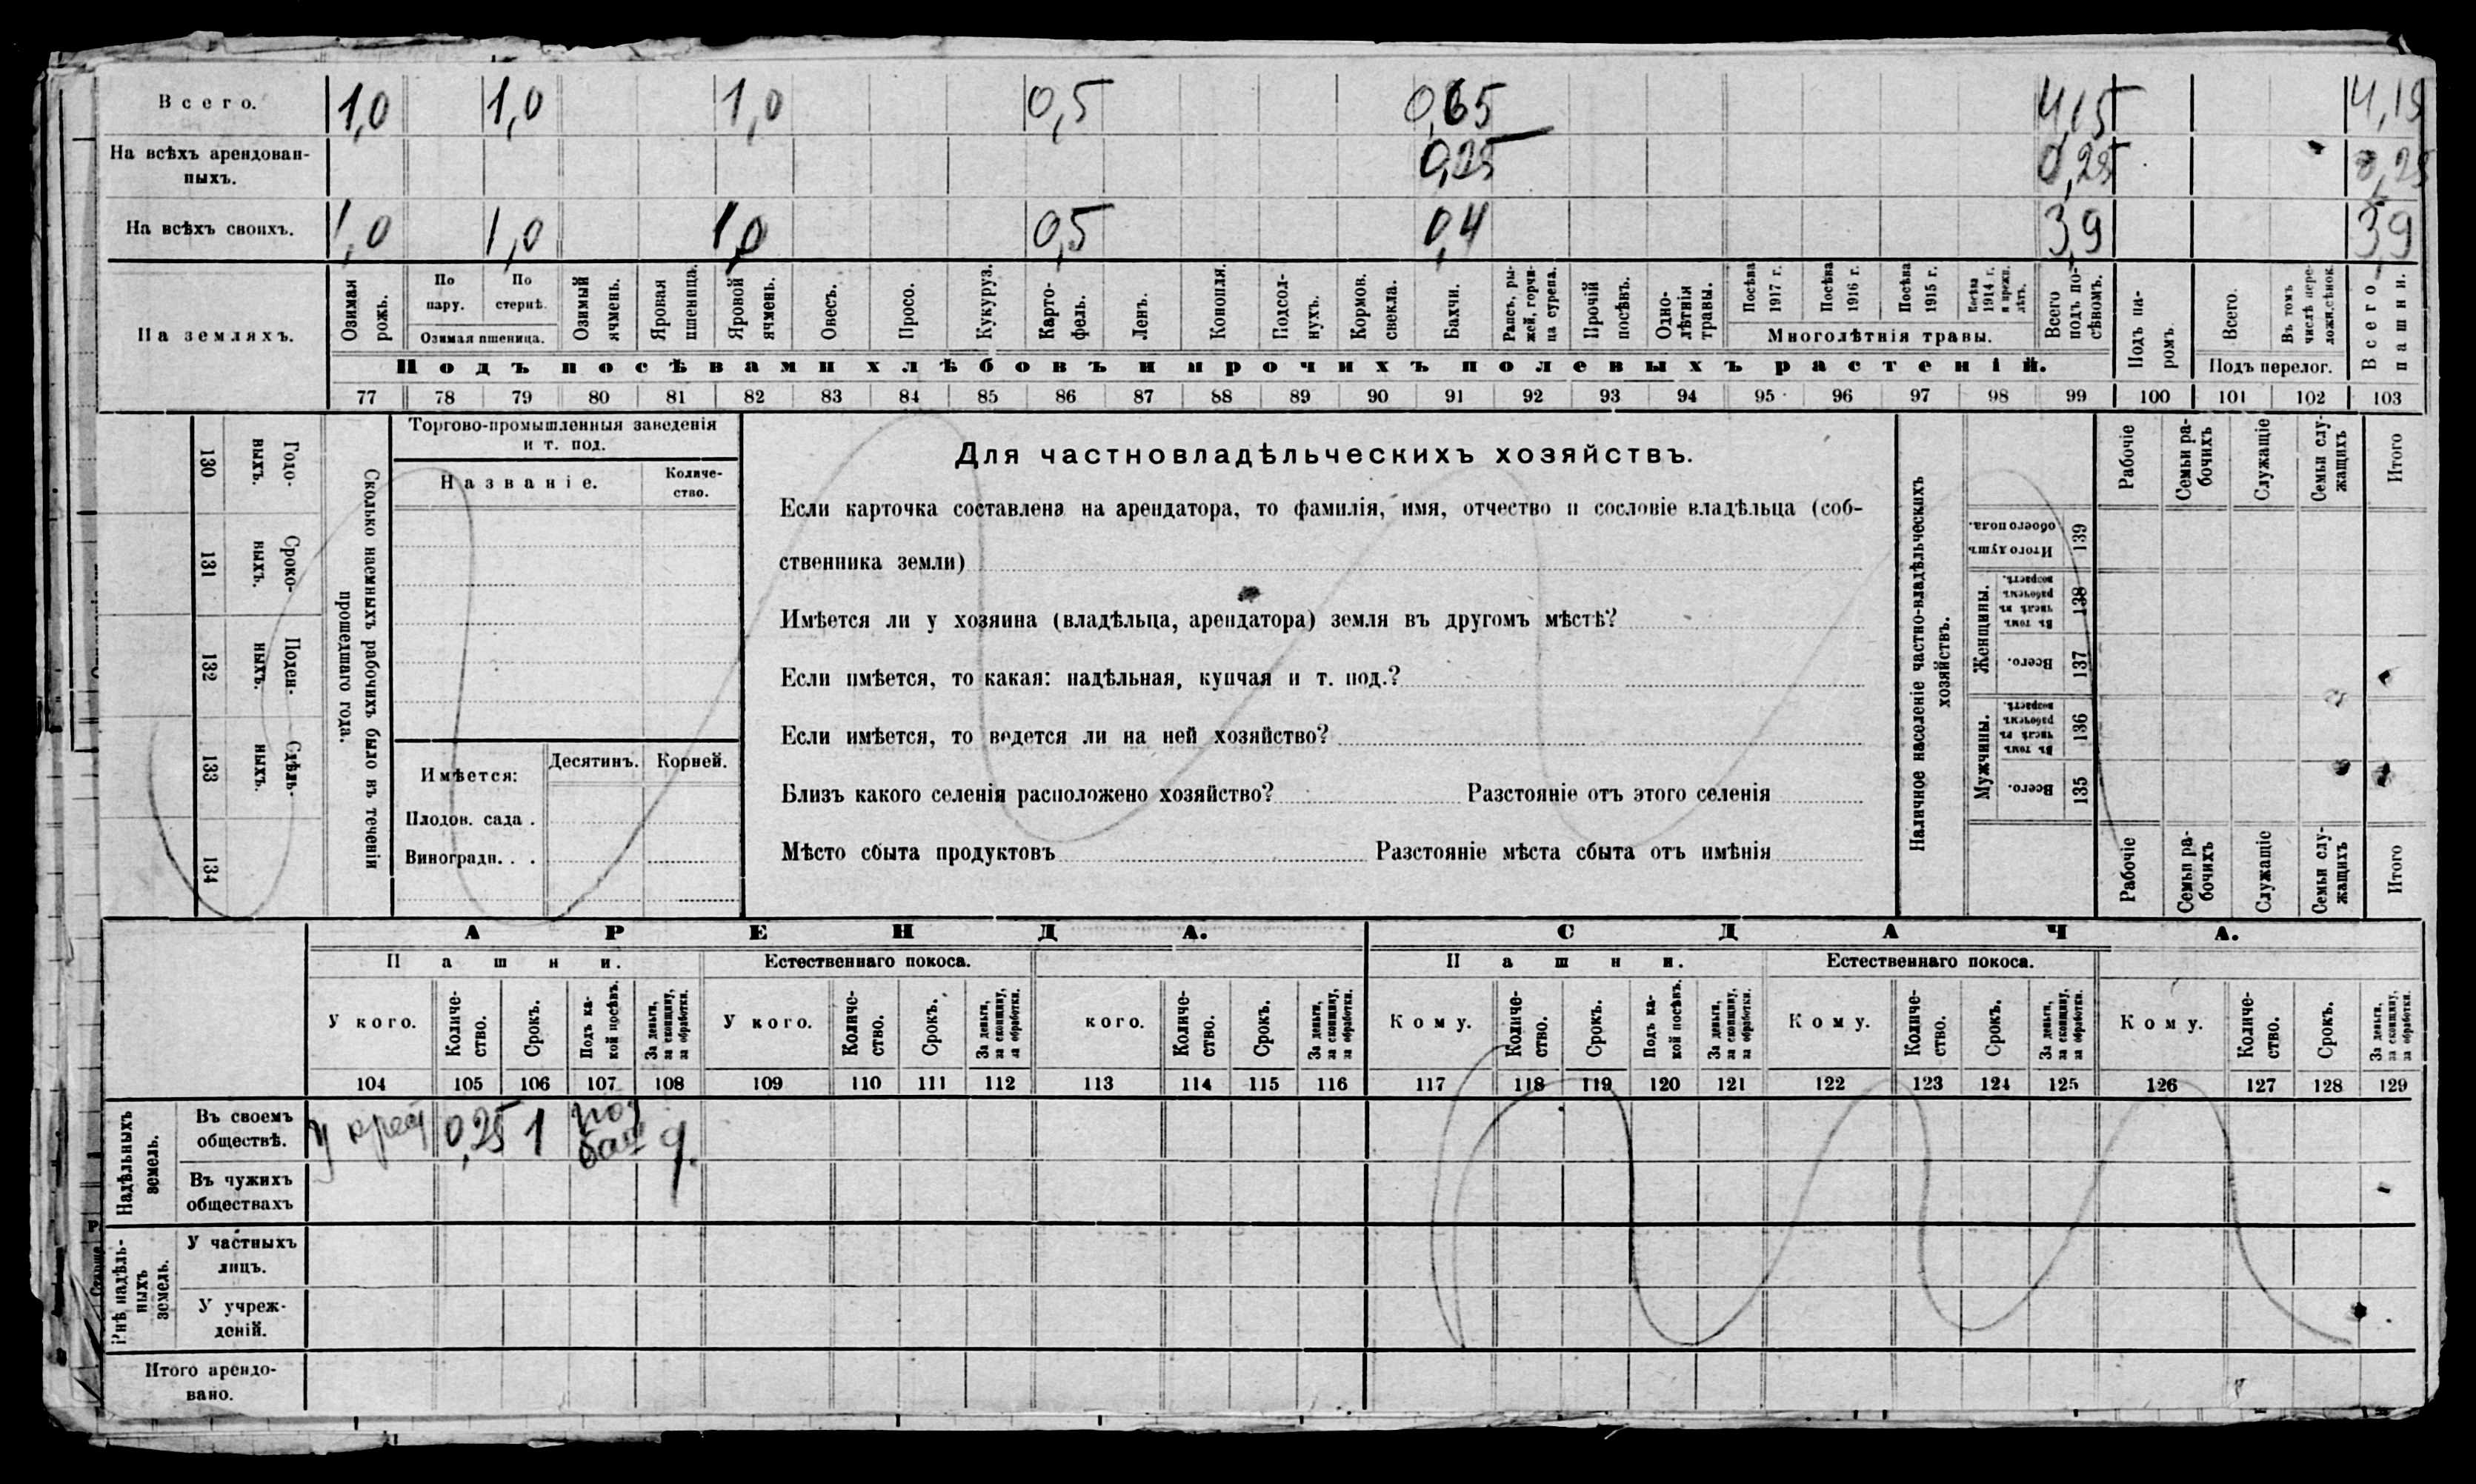 Всего. 1,0 1,0 1,0 0,5 0,65 4,15 4,15
На всѣхъ арендован-
ныхъ. 0,25 0,25 0,25
На всѣхъ своихъ. 1,0 1,0 1,0 0,5 0,4 3,9 3,9
На земляхъ.
Озимая рожь.
По пару.
По стернѣ.
Озимая пшеница.
Озимый ячмень.
Яровая пшеница.
Яровой ячмень.
Овесъ.
Просо.
Кукуруз.
Карто-
фель.
Ленъ.
Конопля.
Подсол-
нухъ.
Кормов. свекла.
Бахчи.
Рапсъ, ры-
жей, горчи-
ца сурепа.
Прочій посѣвъ.
Одно-
лѣтнія травы.
Посѣва 1917 г.
Посѣва 1916 г.
Посѣва 1915 г.
Посѣва 1914 г. и прежн. лѣтъ.
Многолѣтнія травы.
Всего подъ по-
сѣвомъ.
Подъ па-
ромъ.
Всего.
Въ томъ числѣ пере-
ложн. сѣнок.
Подъ перелог.
Всего пашни.
Подъ посѣвами хлѣбовъ и прочихъ полевыхъ растеній.
77 78 79 80 81 82 83 84 85 86 87 88 89 90 91 92 93 94 95 96 97 98 99 100 101 102 103
Сколько наемныхъ рабочихъ было въ теченіи
прошедшаго года.
Годо-
выхъ.
130
Сроко-
выхъ.
131
Поден-
ныхъ.
132
Сдѣль-
ныхъ.
133
134
Торгово-промышленныя заведенія
и т. под.
Названіе.
Количе-
ство.
Имѣется:
Десятинъ.
Корней.
Плодов. сада .
Виноградн. . .
Для частновладѣльческихъ хозяйствъ.
Если карточка составлена на арендатора, то фамилія, имя, отчество и сословіе владѣльца (соб-
ственника земли)
Имѣется ли у хозяина (владѣльца, арендатора) земля въ другомъ мѣстѣ?
Если имѣется, то какая: надѣльная, купчая и т. под.?
Если имѣется, то ведется ли на ней хозяйство?
Близъ какого селенія расположено хозяйство? Разстояніе отъ этого селенія
Мѣсто сбыта продуктовъ Разстояніе мѣста сбыта отъ имѣнія
Наличное населеніе частно-владѣльческихъ
хозяйствъ.
Мужчины.
Всего.
135
Въ томъ числѣ въ рабочемъ возрастѣ.
136
Женщины.
Всего.
137
Въ томъ числѣ въ рабочемъ возрастѣ.
138
Итого душъ обоего пола.
139
Рабочіе
Семьи ра-
бочихъ
Служащіе
Семьи слу-
жащихъ
Итого
Рабочіе
Семьи ра-
бочихъ
Служащіе
Семьи слу-
жащихъ
Итого
АРЕНДА.
СДАЧА.
Пашни.
Естественнаго покоса.
Пашни.
Естественнаго покоса.
У кого.
Количе-
ство.
Срокъ.
Подъ ка-
кой посѣвъ.
За деньги, за скопщину, за обработки.
У кого.
Количе-
ство.
Срокъ.
За деньги, за скопщину, за обработки.
кого.
Количе-
ство.
Срокъ.
За деньги, за скопщину, за обработки.
Кому.
Количе-
ство.
Срокъ.
Подъ ка-
кой посѣвъ.
За деньги, за скопщину, за обработки.
Кому.
Количе-
ство.
Срокъ.
За деньги, за скопщину, за обработки.
Кому.
Количе-
ство.
Срокъ.
За деньги, за скопщину, за обработки.
104 105 106 107 108 109 110 111 112 113 114 115 116 117 118 119 120 121 122 123 124 125 126 127 128 129
Надѣльныхъ
земель.
Въ своемъ
обществѣ.
у крест 0,25 1 под
бахч д.
Въ чужихъ
обществахъ
Внѣ надѣль-
ныхъ
земель.
У частныхъ
лицъ.
У учреж-
деній.
Итого арендо-
вано.